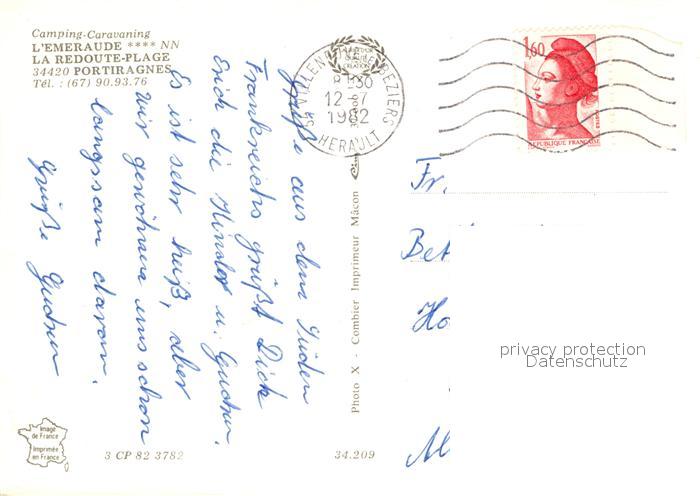 Camping-Caravaning
L'EMERAUDE **** NN
LA REDOUTE-PLAGE
34420 PORTIRAGNES
Tél. : (67) 90.93.76
Grüße aus dem Süden
Frankreichs grüßt Dich
Erich die Kinder u. Gudrun.
Es ist sehr heiß, aber
wir gewöhnen uns schon
langsam daran.
Grüße Gudrun
Image
de France
Imprimée
en France
3 CP 82 3782
34.209
Photo X - Combier Imprimeur Mâcon
BEZIERS
HERAULT
12-7
1982
1,60
POSTES
REPUBLIQUE FRANÇAISE
Fr.
Bet
Ho
privacy protection
Datenschutz